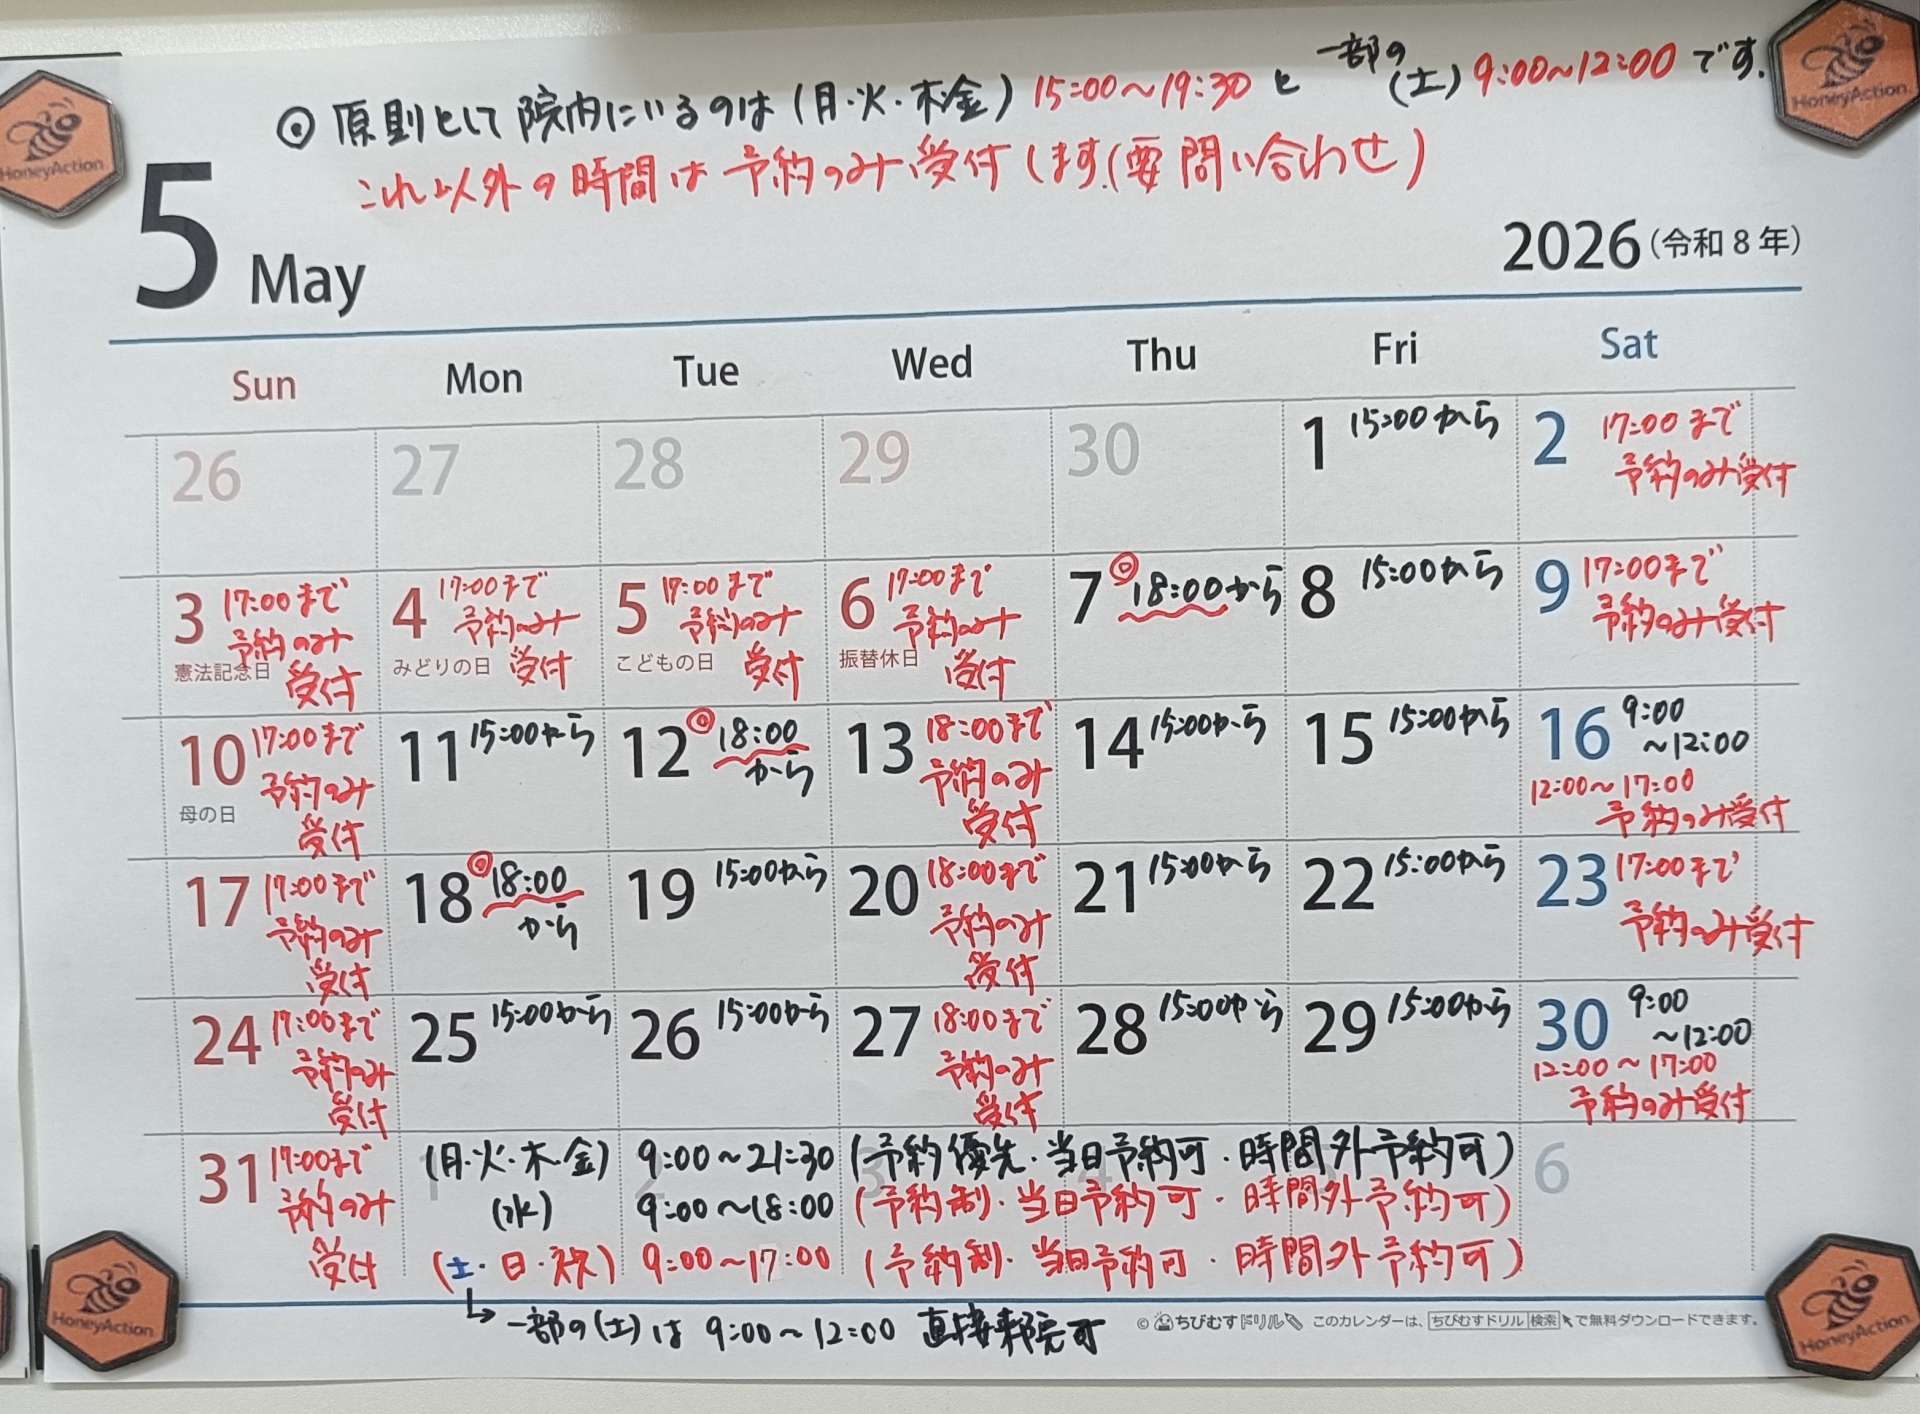 ◎ 原則として院内にいるのは(月・火・木・金) 15:00〜19:30 と 一部の(土) 9:00〜12:00 です.
これ以外の時間は予約のみ受付します.(要問い合わせ)
5 May
2026(令和8年)
Sun Mon Tue Wed Thu Fri Sat
26 27 28 29 30
1 15:00から
2 17:00まで 予約のみ受付
3 17:00まで 予約のみ受付 憲法記念日
4 17:00まで 予約のみ受付 みどりの日
5 17:00まで 予約のみ受付 こどもの日
6 17:00まで 予約のみ受付 振替休日
7 ◎18:00から
8 15:00から
9 17:00まで 予約のみ受付
10 17:00まで 予約のみ受付 母の日
11 15:00から
12 ◎18:00から
13 18:00まで 予約のみ受付
14 15:00から
15 15:00から
16 9:00〜12:00 12:00〜17:00 予約のみ受付
17 17:00まで 予約のみ受付
18 ◎18:00から
19 15:00から
20 18:00まで 予約のみ受付
21 15:00から
22 15:00から
23 17:00まで 予約のみ受付
24 17:00まで 予約のみ受付
25 15:00から
26 15:00から
27 18:00まで 予約のみ受付
28 15:00から
29 15:00から
30 9:00〜12:00 12:00〜17:00 予約のみ受付
31 17:00まで 予約のみ受付
(月・火・木・金) 9:00〜21:30 (予約優先・当日予約可・時間外予約可)
(水) 9:00〜18:00 (予約制・当日予約可・時間外予約可)
(土・日・祝) 9:00〜17:00 (予約制・当日予約可・時間外予約可)
1 2 3 4 6
↳ 一部の(土)は 9:00〜12:00 直接来院可
© ちびむすドリル このカレンダーは、ちびむすドリル 検索 で無料ダウンロードできます。
HoneyAction
HoneyAction
HoneyAction
HoneyAction